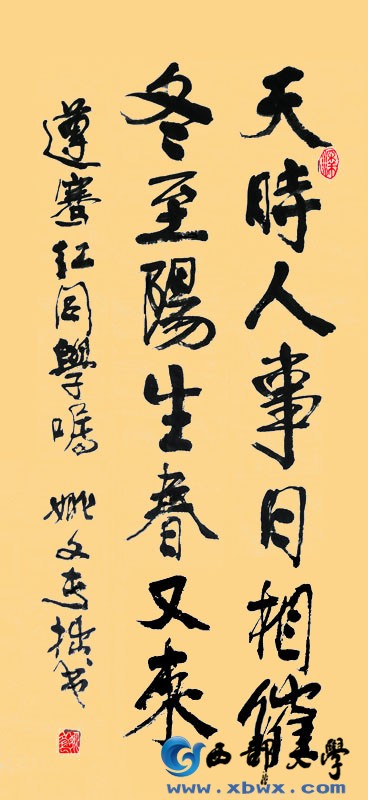 天時人事日相催
冬至陽生春又來
遵騫紅同學囑
姚文 拙書
西部文學
www.xbwx.cn